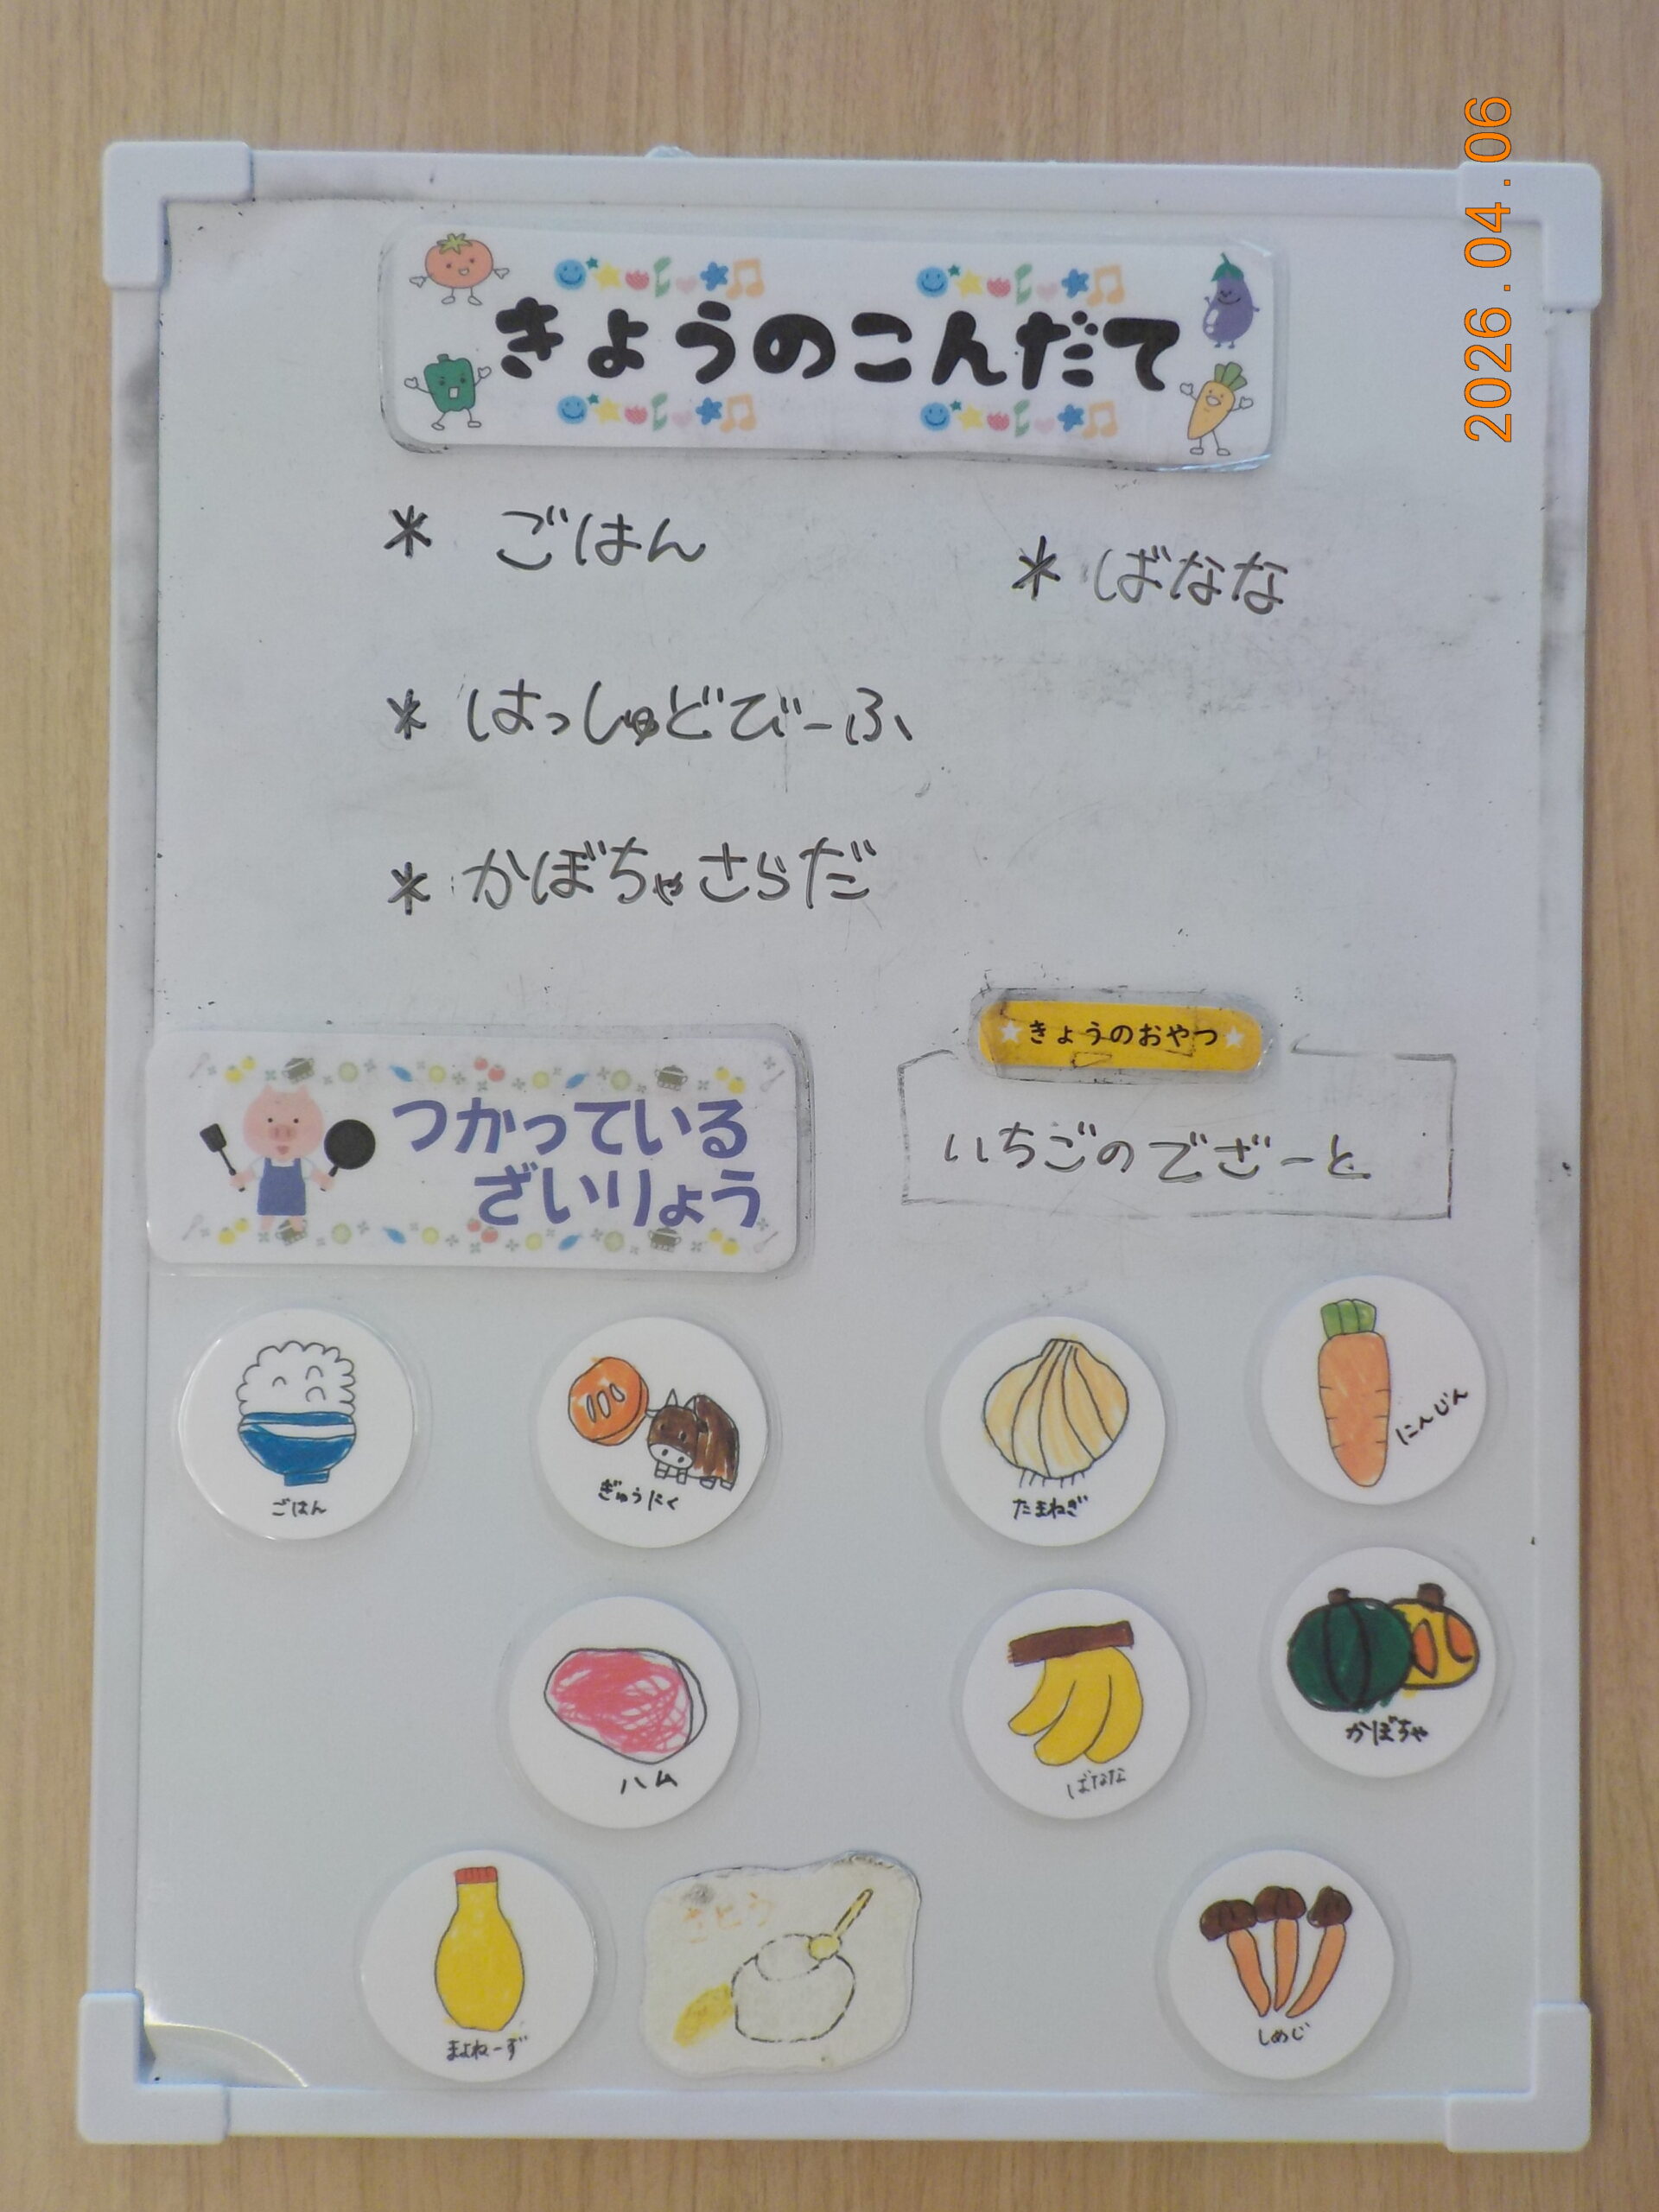 2026.04.06
きょうのこんだて
* ごはん
* ばなな
* はっしゅどびーふ
* かぼちゃさらだ
きょうのおやつ
いちごのでざーと
つかっている
ざいりょう
ごはん
ぎゅうにく
たまねぎ
にんじん
ハム
ばなな
かぼちゃ
まよねーず
さとう
しめじ